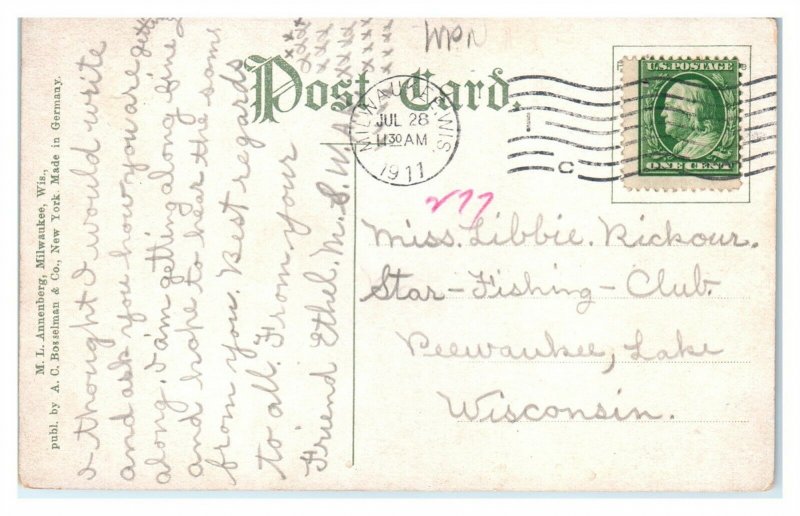 WPN
Post Card.
MILWAUKEE, WIS.
JUL 28
11 30 AM
1911
C
U.S. POSTAGE
ONE CENT
277
Miss. Libbie. Rickour.
Star-Fishing-Club.
Peewaukee, Lake
Wisconsin.
I thought I would write
and ask you how you are getting
along. I am getting along fine
and hope to hear the same
from you. Best regards
to all. From your
Friend Ethel. M. S.
xxx
M. L. Annenberg, Milwaukee, Wis.,
publ. by A. C. Bosselman & Co., New York Made in Germany.